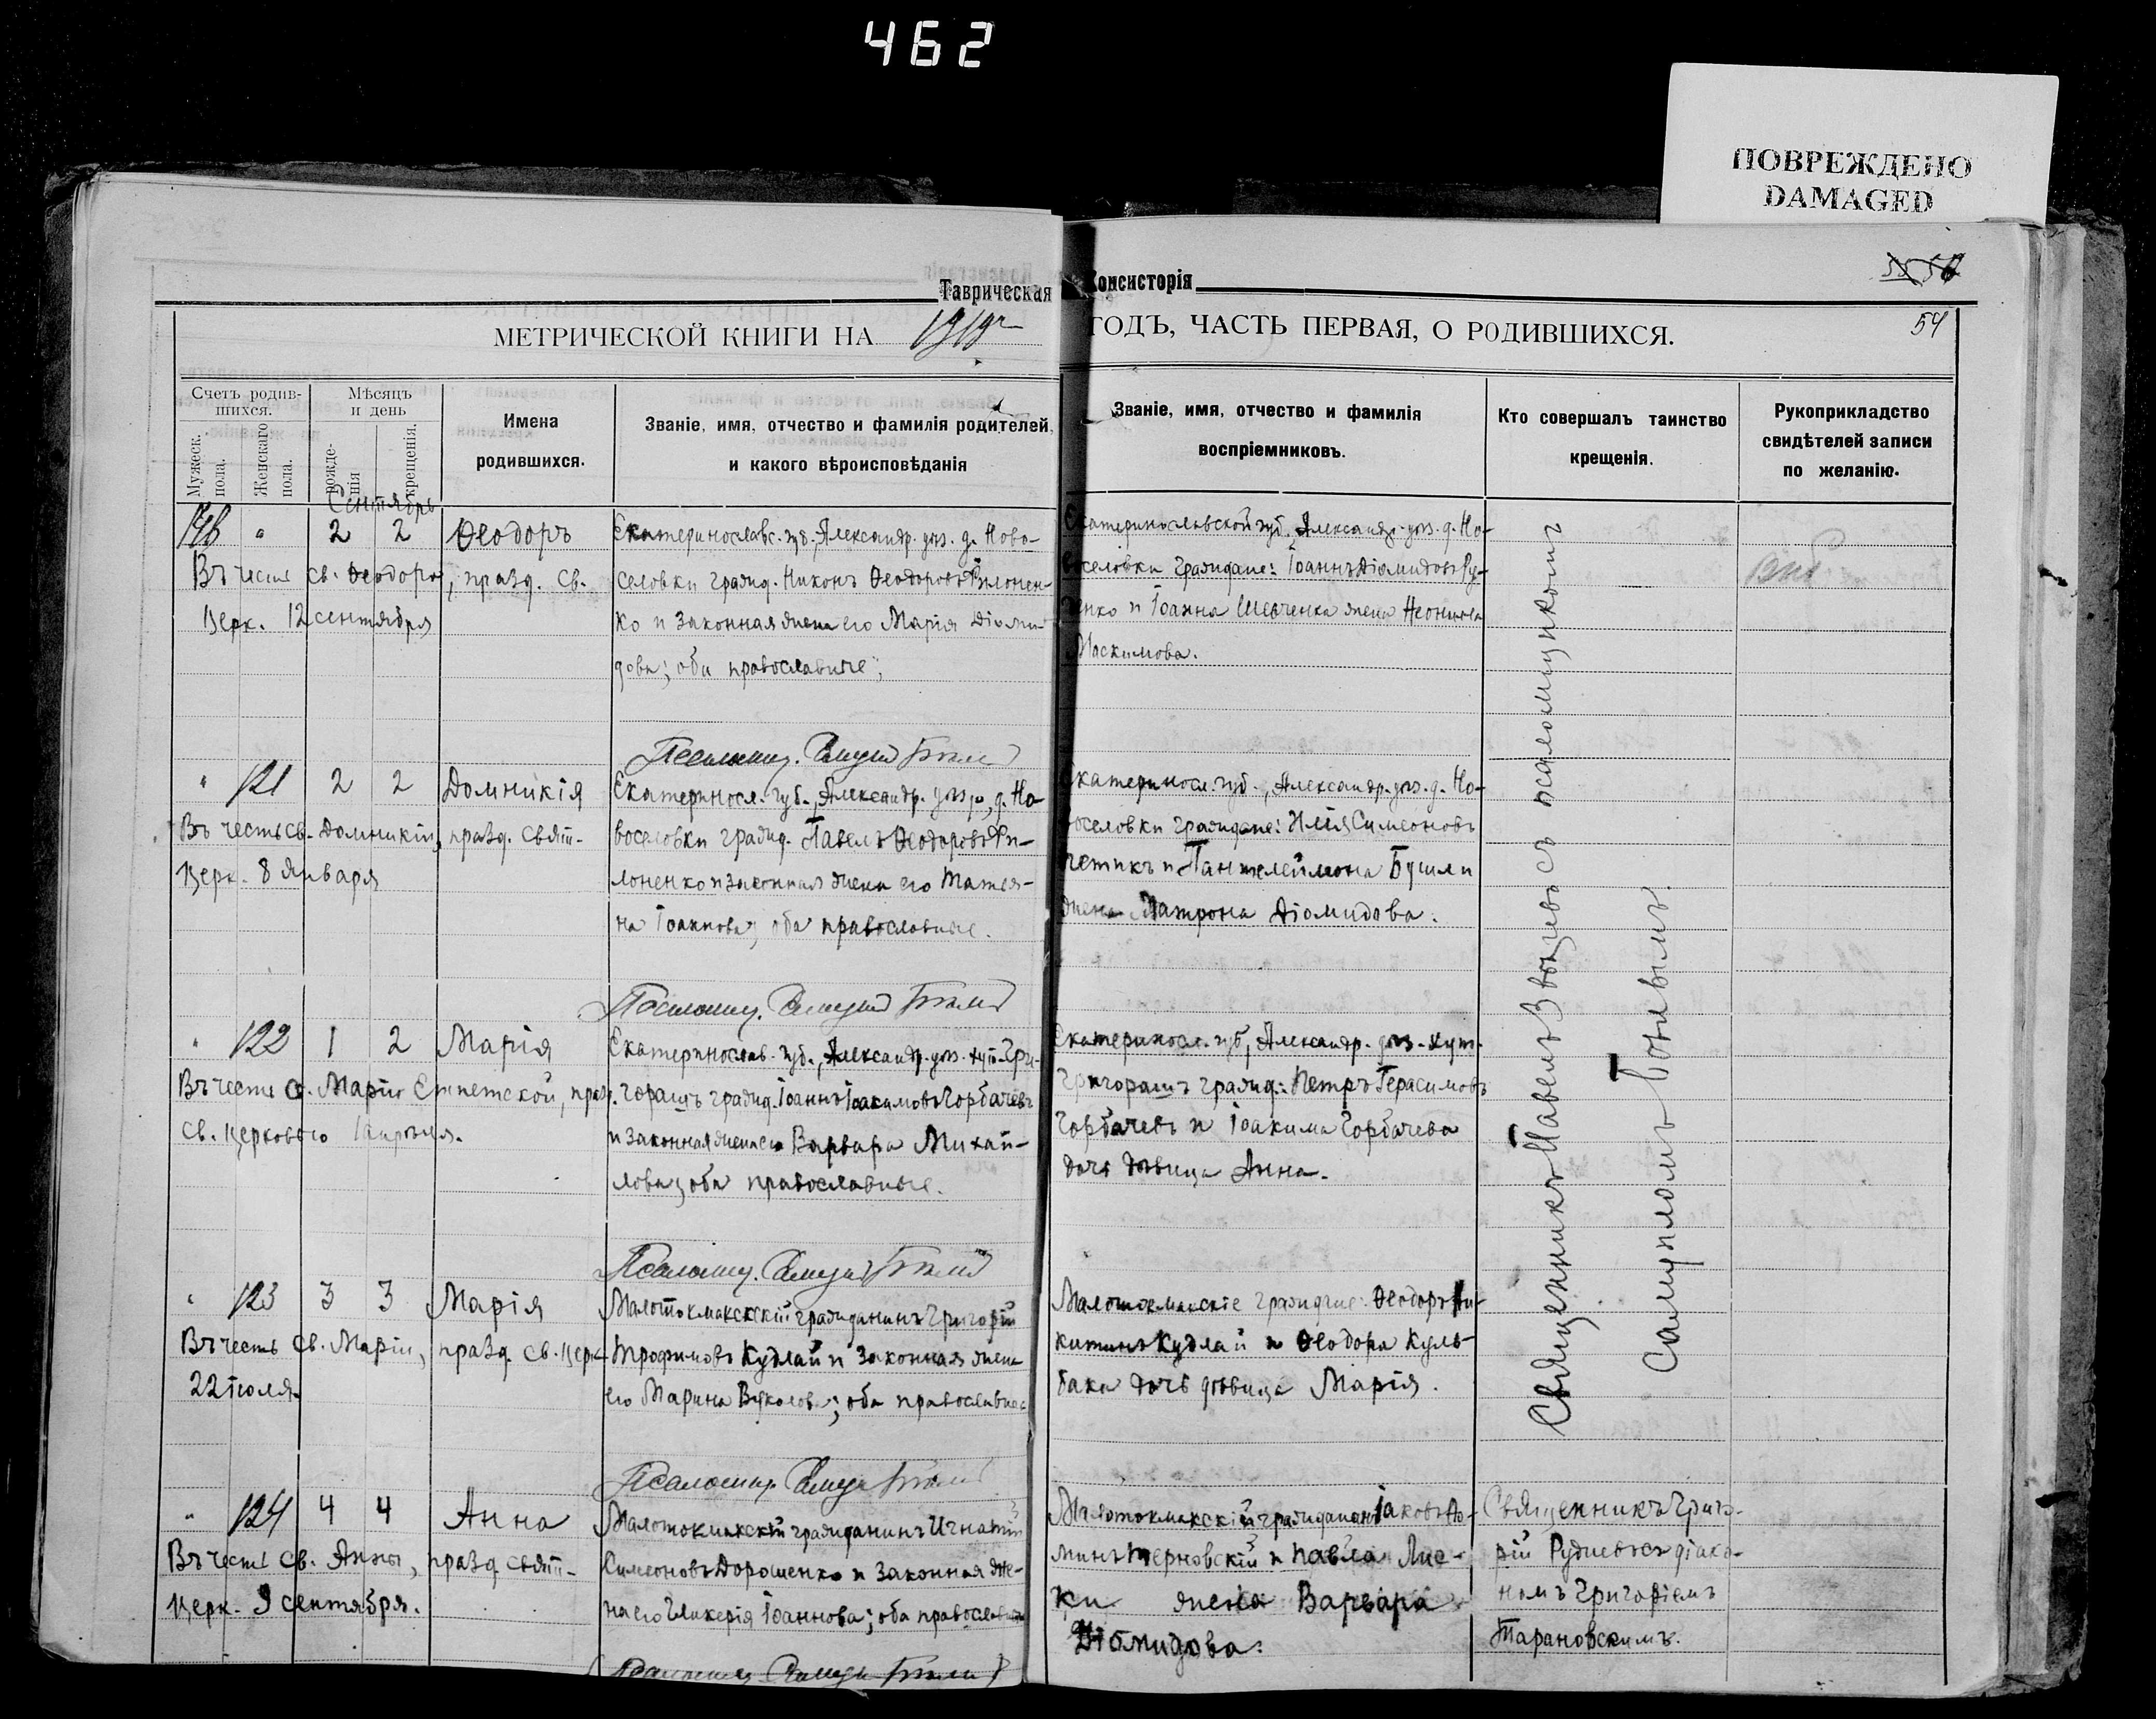 462
ПОВРЕЖДЕНО
DAMAGED
Таврическая Консисторія
54
МЕТРИЧЕСКОЙ КНИГИ НА 1919 г ГОДЪ, ЧАСТЬ ПЕРВАЯ, О РОДИВШИХСЯ.
Счетъ родив-
шихся.
Мужеск.
пола.
Женскаго
пола.
Мѣсяцъ
и день
рожде-
нія
крещенія.
Имена
родившихся.
Званіе, имя, отчество и фамилія родителей,
и какого вѣроисповѣданія
Званіе, имя, отчество и фамилія
воспріемниковъ.
Кто совершалъ таинство
крещенія.
Рукоприкладство
свидѣтелей записи
по желанію.
Сентябрь
" 2 2 Ѳеодоръ
Въ честь св. Ѳеодора, празд. св.
Церк. 12 сентября
Екатеринославс. губ., Александр. уѣз. д. Ново-
селовки гражд. Никонъ Ѳеодоровъ Филонен-
ко и законная жена его Марія Діоми-
дова; оба православные;
Екатеринославской губ., Александр. уѣз. д. Но-
воселовки граждане: Іоаннъ Діомидовъ Ру-
денко и Іоанна Шевченка жена Неонила
Максимова.
Псаломщ. Самуилъ
" 121 2 2 Домникія
Въ честь св. Домникіи, празд. свят.
церк. 8 Января
Екатеринося. губ., Александр. уѣзд, д. Но-
воселовки гражд. Павелъ Ѳеодоровъ Фи-
лоненко и законная жена его Татья-
на Іоаннова; оба православные.
Екатеринося. губ., Александр. уѣз. д. Но-
воселовки граждане: Илія Симеоновъ
и Пантелеймона
жена Матрона Діомидова.
Псаломщ. Самуилъ
" 122 1 2 Марія
Въ честь св. Маріи Египетской, празд.
св. церковью 1 апрѣля.
Екатеринослав. губ., Александр. уѣз. хут. Гри-
горашъ гражд. Іоаннъ Іоакимовъ Горбачевъ
и законная жена его Варвара Михай-
лова; оба православные.
Екатеринося. губ, Александр. уѣз. хут.
Григорашъ гражд.: Петръ Герасимовъ
Горбачевъ и Іоакима Горбачева
дочь дѣвица Анна.
Псаломщ. Самуилъ
" 123 3 3 Марія
Въ честь св. Маріи, празд. св. церк.
22 Іюля.
Малотокмакскій гражданинъ Григорій
Трофимовъ Кудлай и законная жена
его Марина Вуколова; оба православные
Малотокмакскіе граждане: Ѳеодоръ Ни-
китинъ Кудлай и Ѳеодора Куль-
бака дочь дѣвица Марія.
Псаломщ. Самуилъ
" 124 4 4 Анна
Въ честь св. Анны, празд. свят.
церк. 9 сентября.
Малотокмакскій гражданинъ Игнатій
Симеоновъ Дорошенко и законная же-
на его Гликерія Іоаннова; оба православные
Малотокмакскій гражданинъ Іаковъ Ѳо-
минъ Терновскій и Павла Лис-
ки жена Варвара
Діомидова.
Священникъ Григо-
рій Рудневъ съ діако-
номъ Григоріемъ
Тарановскимъ.
Псаломщ. Самуилъ
Священникъ Павелъ съ псаломщикомъ
Самуиломъ